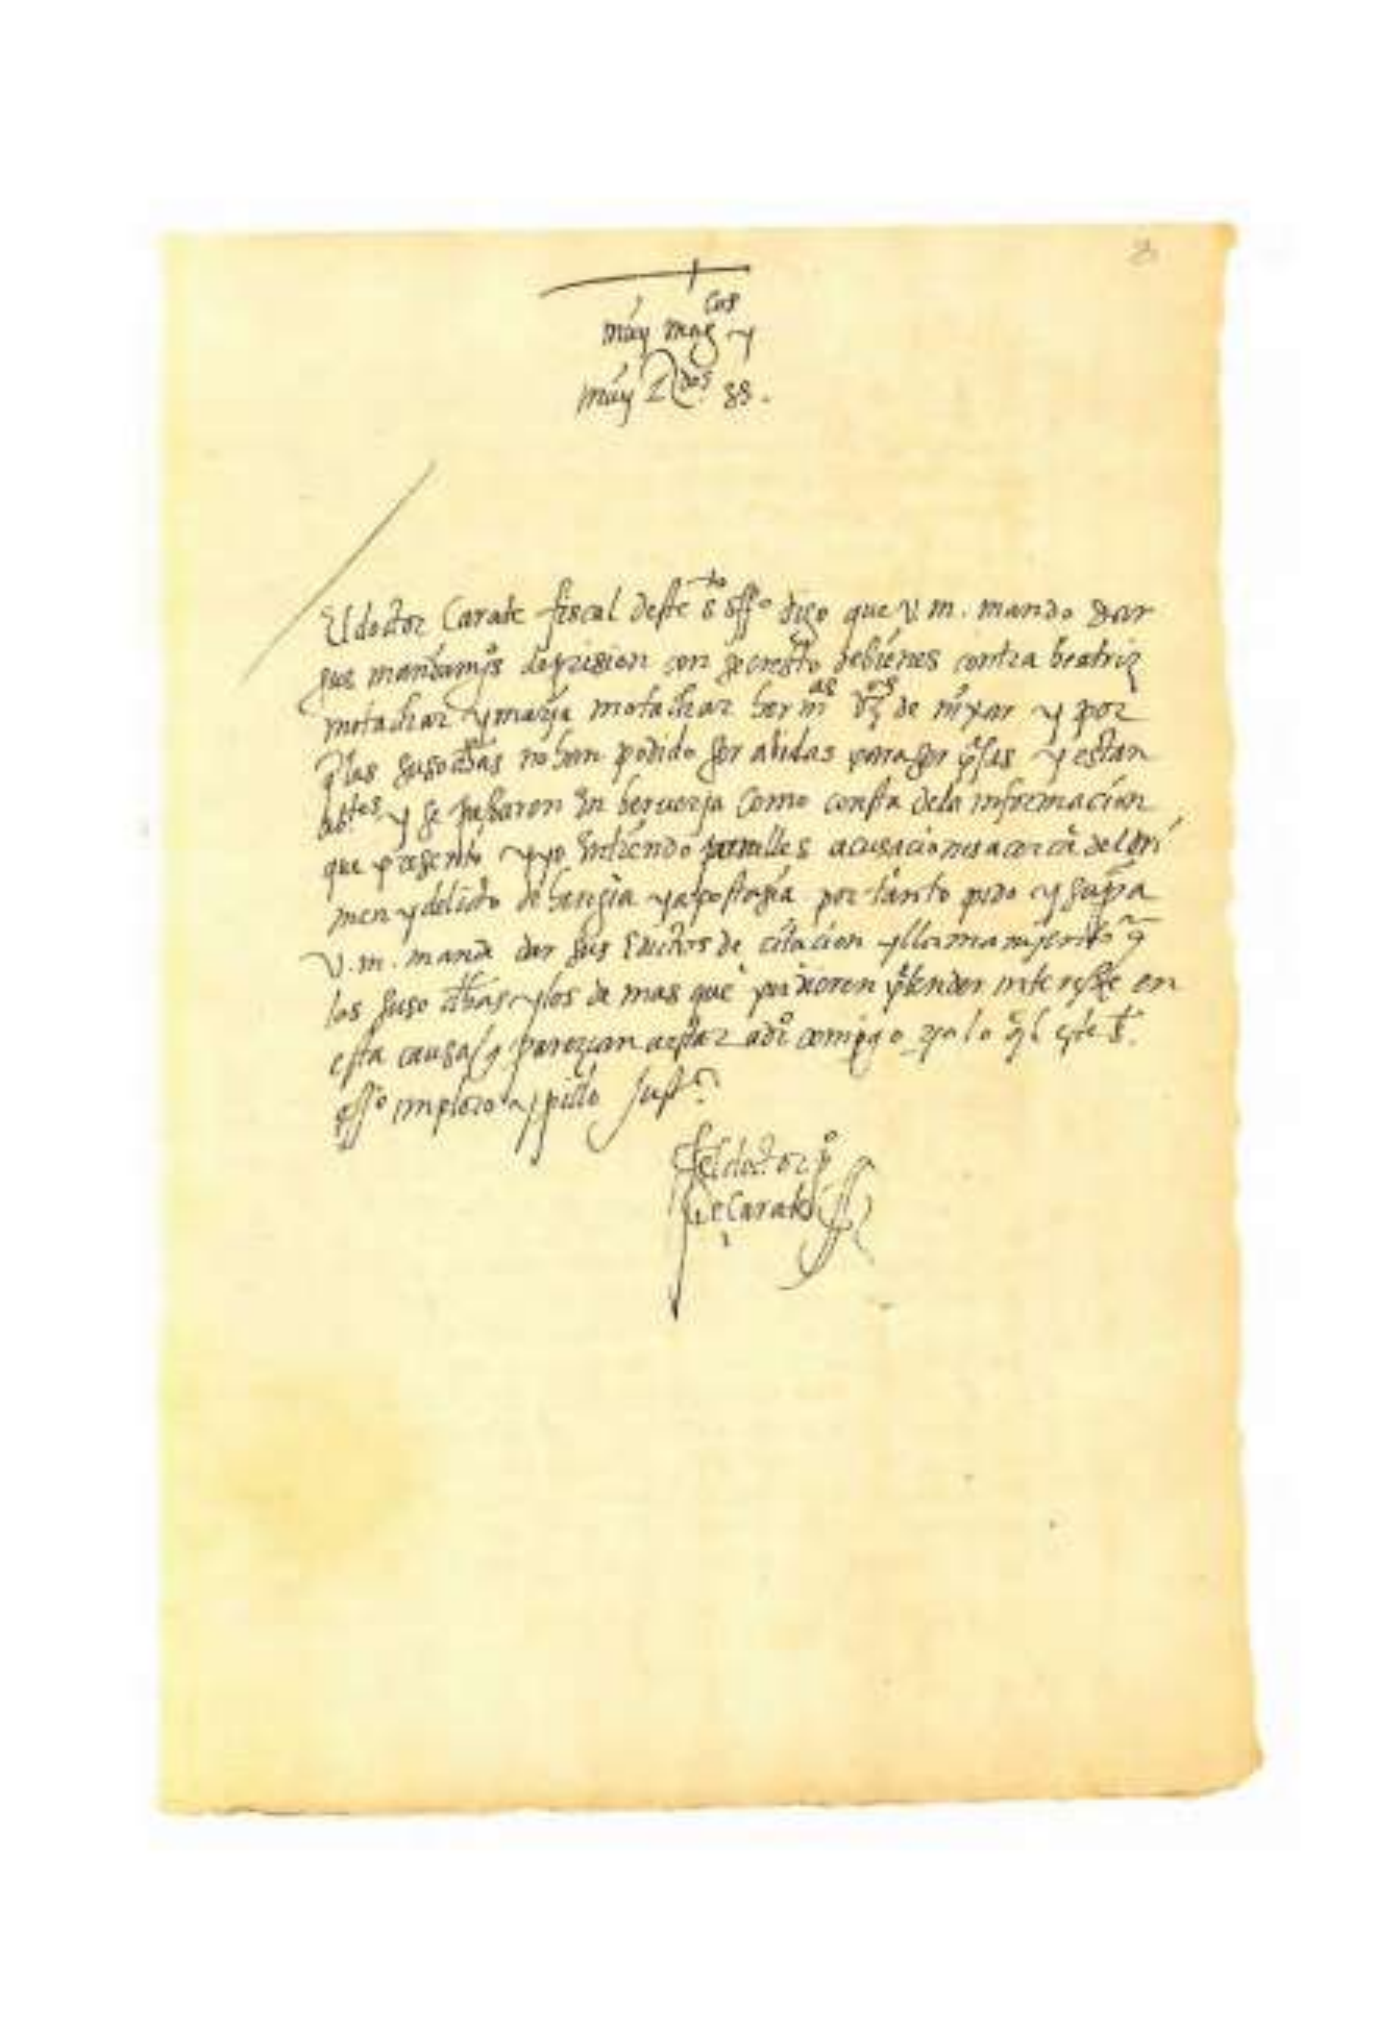 muy mag cos y
muy Rdos ss.
El doctor Carate fiscal deste s to offo digo que v. m. mando dar
sus mandamjos de prision con secresto de bienes contra beatriz
motachar y marja motachar herm as vz os de nixar y por
q las suso dhas no han podido ser abidas para ser psas y estan
abs tes y se pasaron en berverja como consta de la informacion
que presento y yo entiendo ponelles acusaciones acerca del cri
men y delicto de heregia y apostasia por tanto pido y sup co a
v. m. mande dar sus Edictos de citacion y llamamjento pa q
las suso dhas y los de mas que pudieren ptender interesse en
esta causa parezcan a estar a dr o comigo
offo imploro y pillo just a
el doctor p o
de Carate